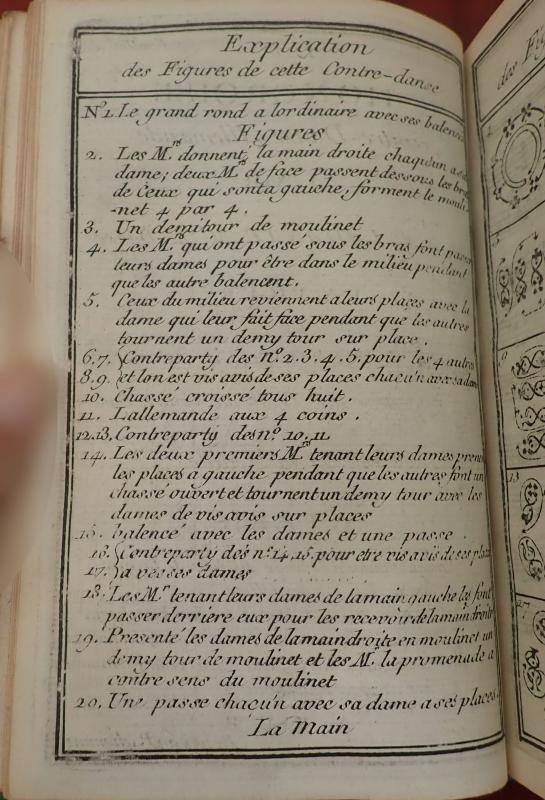 Explication
des Figures de cette Contre-danse
Nº1. Le grand rond a lordinaire avec ses balencés
Figures
2. Les Mrs donnent la main droite chaqu'un a sa
dame; deux Mrs de face passent dessous les bras
de Ceux qui sont a gauche, forment le mouli
-net 4 par 4.
3. Un demi tour de moulinet
4. Les Mrs qui ont passé sous les bras font passer
leurs dames pour être dans le milieu pendant
que les autre balencent.
5. Ceux du milieu reviennent a leurs places avec la
dame qui leur fait face pendant que les autres
tournent un demy tour sur place.
6.7. Contreparty des nº. 2. 3. 4. 5. pour les 4 autres
8.9. et lon est vis avis de ses places chacu'n avec sa dame
10. Chassé croissé tous huit.
11. Lallemande aux 4 coins.
12.13. Contreparty des nº. 10. 11
14. Les deux premiers Mrs tenant leurs dames prend
les places a gauche pendant que les autres font un
chassé ouvert et tournent un demy tour avec les
dames de vis avis sur places
15. balencé avec les dames et une passe.
16. Contreparty des nº. 14. 15. pour etre vis avis de ses places
17. a vec ses dames
18. Les Mrs tenant leurs dames de la main gauche les font
passer derriere eux pour les recevoir de la main droite
19. Presenté les dames de la main droite en moulinet un
demy tour de moulinet et les Mrs la promenade a
contre sens du moulinet
20. Une passe chacu'n avec sa dame a ses places.
La Main
des Fi